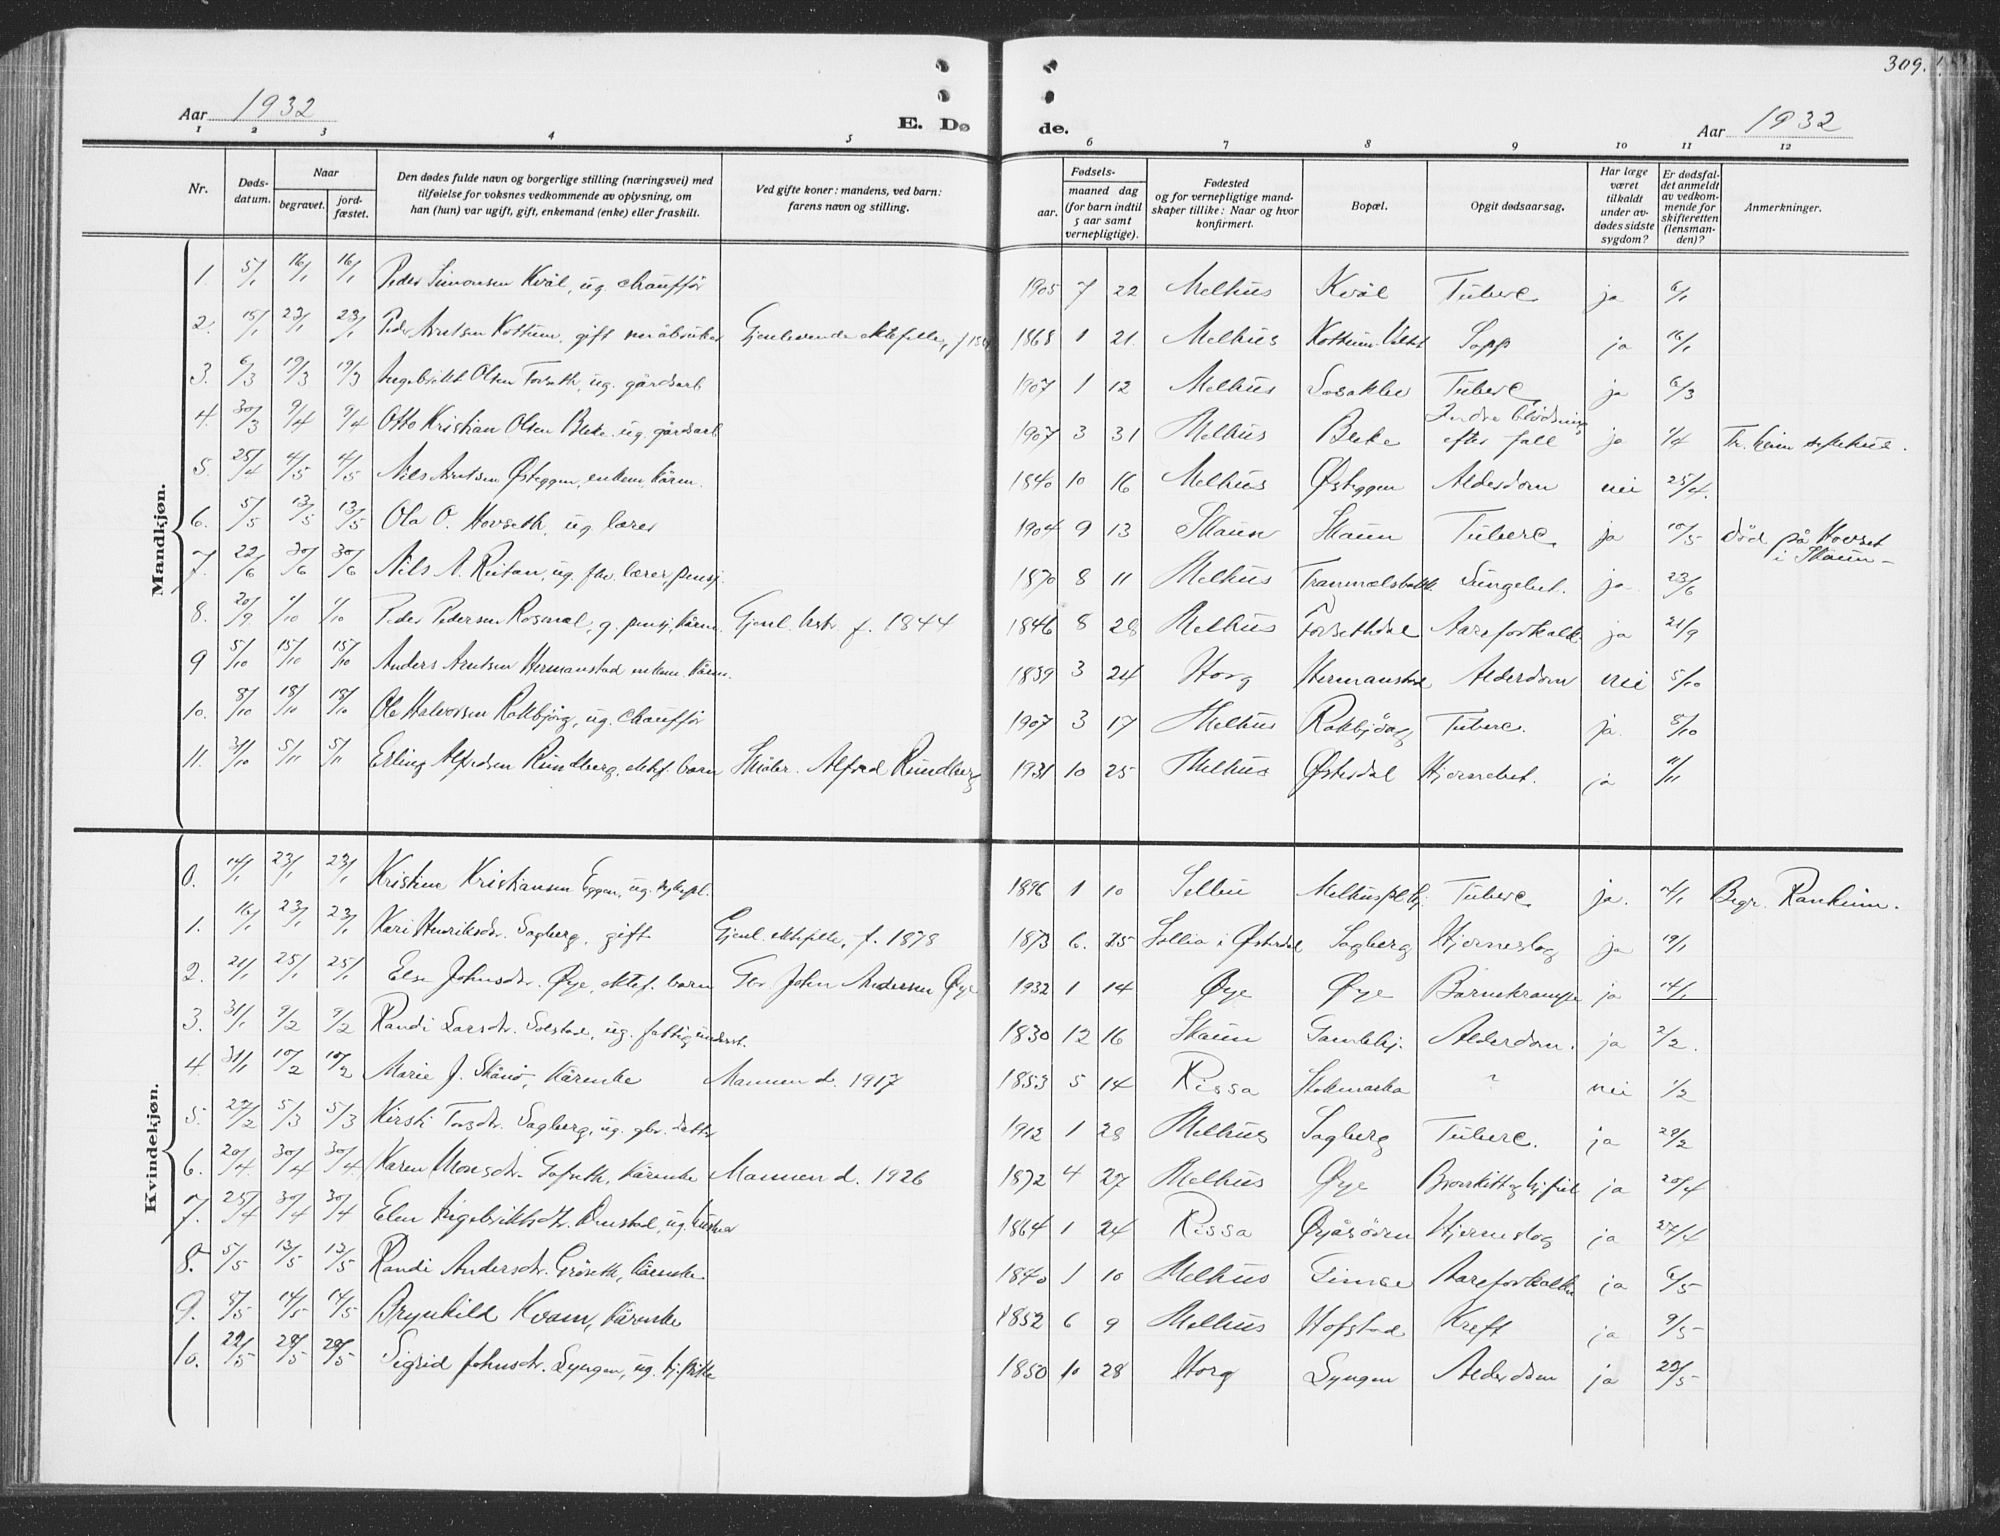 309.
Aar 1932
E. Dø
de.
Aar 1932
1 2 3 4 5 6 7 8 9 10 11 12
Nr. Døds-datum. Naar begravet. jord-fæstet. Den dødes fulde navn og borgerlige stilling (næringsvei) med tilføielse for voksnes vedkommende av oplysning, om han (hun) var ugift, gift, enkemand (enke) eller fraskilt. Ved gifte koner: mandens, ved barn: farens navn og stilling. Fødsels- aar. maaned dag (for barn indtil 5 aar samt vernepligtige). Fødested og for vernepligtige mand-skaper tillike: Naar og hvor konfirmert. Bopæl. Opgit dødsaarsag. Har læge været tilkaldt under av-dødes sidste sygdom? Er dødsfal-det anmeldt av vedkom-mende for skifteretten (lensman-den)? Anmerkninger.
Mandkjøn.
1. 5/1 16/1 16/1 Peder Simonsen Kvål, ug. chauffør 1905 7 22 Melhus Kvål Tuberc. ja 6/1
2. 15/1 23/1 23/1 Peder Arntsen Kottum, gift småbruker Gjenlevende ektefelle, f. 1868 1 21 Melhus Kottum Sopp ja 16/1
3. 6/3 19/3 19/3 Ingebrikt Olsen Forseth, ug. gårdsarb. 1907 1 12 Melhus Tuberc. ja 6/3
4. 30/3 9/4 9/4 Otto Kristian Olsen Bleke, ug. gårdsarb. 1907 3 31 Melhus Bleke Indre blødning efter fall ja 1/4 Tr.heim sykehus.
5. 25/4 4/5 4/5 Nils Arntsen Østeggen, enkem. kårm. 1840 10 16 Melhus Østeggen Alderdom nei 25/4.
6. 5/5 13/5 13/5 Ola O. Hovseth, ug. lærer 1904 9 13 Skaun Skaun Tuberc. ja 10/5 Død på Hovset i Skaun -
7. 22/6 30/6 30/6 Nils A. Reitan, ug. fhv. lærer pensj. 1870 8 11 Melhus Lungebet. ja 23/6
8. 20/9 1/10 1/10 Peder Pedersen Rosmæl, g. pensj. kårm. Gjenl. hstr. f. 1844 1846 8 28 Melhus Forsethdal Aareforkalk. ja 21/9
9 5/10 15/10 15/10 Anders Arntsen Hermanstad enkem. kårm. 1839 3 24 Horg Hermanstad Alderdom nei 5/10
10. 8/10 18/10 18/10 Ole Halvorsen Rokbjørg, ug. chauffør 1907 3 17 Melhus Rokbjørg Tuberc. ja. 8/10
11. 31/10 5/11 5/11 Erling Alfredsen Rundberg, ektef. barn Alfred Rundberg 1931 10 25 Melhus Østerdal Hjernebet. ja 11/11
Kvindekjøn.
0. 14/1 23/1 23/1 Kristine Kristiansen Eggen, ug. sykepl. 1896 1 10 Selbu Tuberc. ja. 14/1 Begr. Ranheim.
1. 16/1 23/1 23/1 Kari Henriksdr. Sagberg, gift Gjenl. ektefelle, f. 1878 1873 6. 25 Sollia i Østerdal Sagberg Hjerneslag ja 19/1
2. 21/1 25/1 25/1 Else Johnsdr. Øye, ektef. barn Gbr. John Andersen Øye 1932 1 14 Øye Øye Barnekrampe ja 14/1
3. 31/1 9/2 9/2 Randi Larsdr. Solstad, ug. fattigunderst. 1830 12 16 Skaun Gamlehj. Alderdom. ja 2/2.
4. 31/1 10/2 10/2 Marie J. Skånø, kårenke Mannen d. 1917 1853 5 14 Rissa ? nei 1/2
5. 27/2 5/3 5/3 Kirsti Torsdr. Sagberg, ug. gbr. datter 1912 1 28 Melhus Sagberg Tuberc. ja 29/2
6. 20/4 30/4 30/4 Karen Monsdr. kårenke Mannen d. 1926 1872 4 27 Melhus Øye ja 20/4
7. 25/4 30/4 30/4 Elen Ingebriktsdr. ug. 1864 1 24 Rissa Øyåsøren Hjerneslag ja 27/4
8. 5/5 13/5 13/5 Randi Andersdr. Grøseth, kårenke 1840 1 10 Melhus Gimse Aareforkalkn ja 6/5
9. 8/5 14/5 14/5 Brynhild Kvam, kårenke 1852 6 9 Melhus Hofstad Kreft ja 9/5
10. 22/5 28/5 28/5 Sigrid Johnsdr. Lyngen, ug. 1850 10 28 Horg Lyngen Alderdom ja 23/5